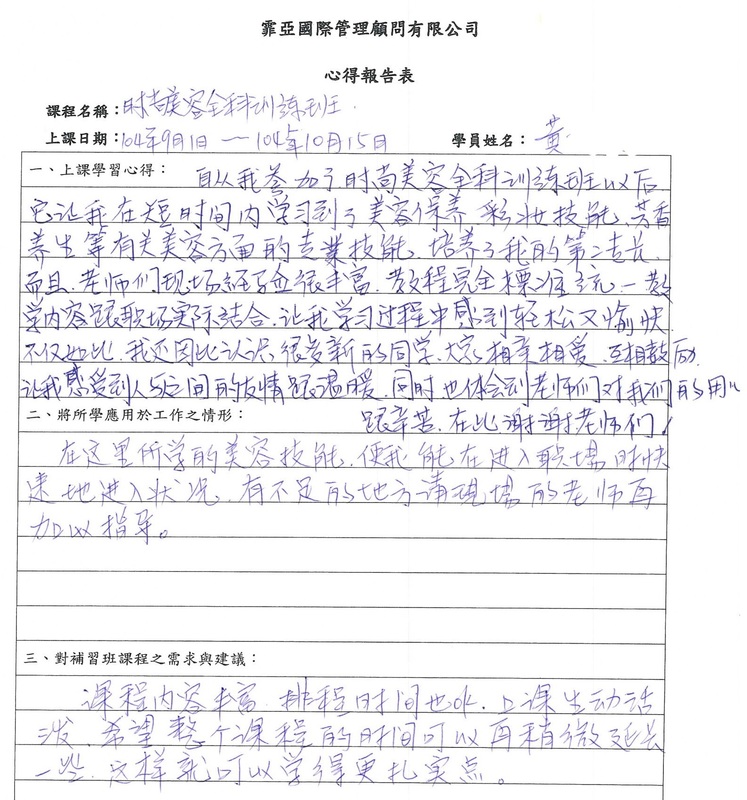 霏亞國際管理顧問有限公司
心得報告表
課程名稱：时尚美容全科训练班.
上課日期：104年9月1日 — 104年10月15日 學員姓名：黃
一、上課學習心得： 自从我参加了时尚美容全科训練班以后
它让我在短时间内学习到了美容保养.彩妆技能.芳香
养生等有关美容方面的专業技能.培养了我的第二专长.
而且.老师们现场经验很丰富.教程完全標准统一教
学内容跟职场实际结合.让我学习过程中感到轻松又愉快.
不仅如此.我还因此认识很多新的同学.大家相亲相爱.互相鼓励.
让我感受到人与之间的友情跟温暖.同时也体会到老师们对我们的用心
二、將所學應用於工作之情形： 跟辛苦.在此谢谢老师们！
在这里所学的美容技能.使我能在进入職場时快
速地进入状况.有不足的地方请現場的老师再
加以指导。
三、對補習班課程之需求與建議：
课程内容丰富.排程时间也ok.上课生动活
泼.希望整个课程的时间可以再稍微延长
一些.这样就可以学得更扎实点。